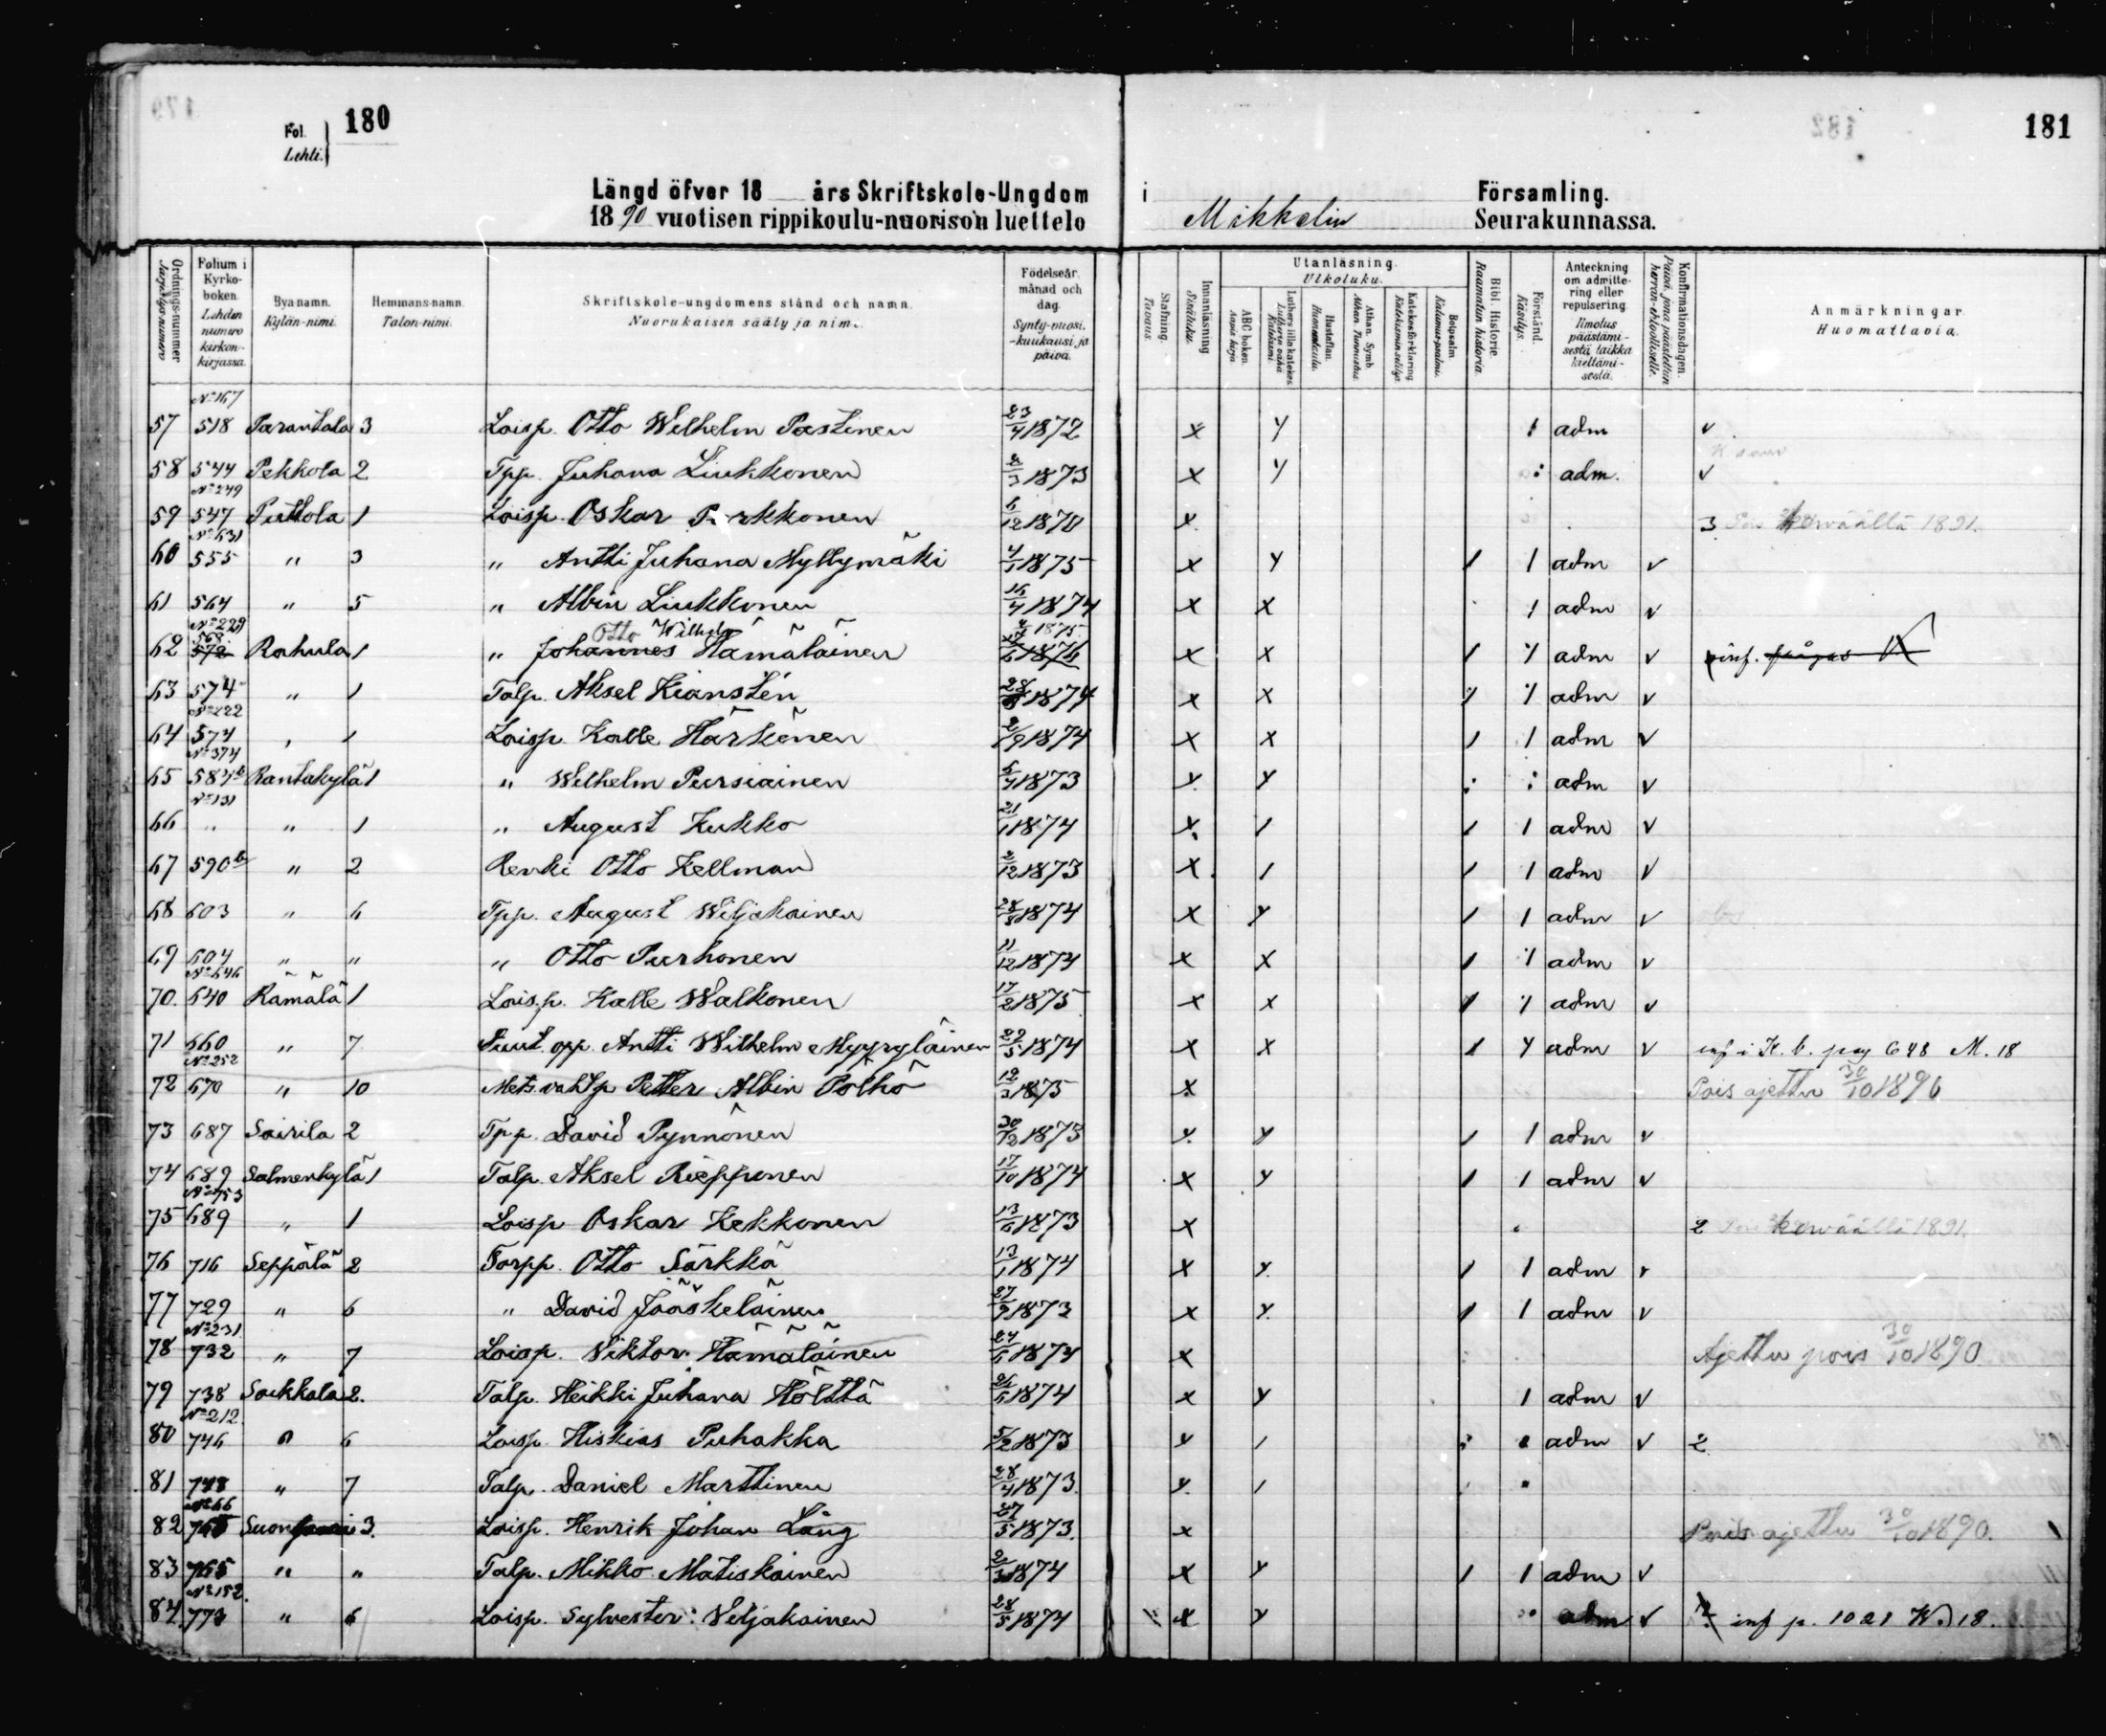 Fol. Lehti. 180
181
Längd öfver 18 års Skriftskole-Ungdom i Församling.
1890 vuotisen rippikoulu-nuorison luettelo Mikkelin Seurakunnassa.
Ordnings-nummer Järjestys-numero
Folium i Kyrko-boken. Lehden numero kirkon-kirjassa.
Bya namn. Kylän-nimi.
Hemmans-namn. Talon-nimi.
Skriftskole-ungdomens stånd och namn. Nuorukaisen sääty ja nimi.
Födelseår, månad och dag. Synty-vuosi, -kuukausi ja päivä.
Stafning. Tavaus.
Innanläsning Sisäluku.
Utanläsning. Ulkoluku.
ABC boken. Aapis kirja
Luthers lilla katekes. Lutherin vähä Katekismi
Hustaflan. Huoneentaulu.
Athan. Symb. Athan. Tunnustus.
Katekesförklaring Katekismin selitys.
Botpsalm Katumus-psalmi.
Bibl. Historie. Raamatun historia.
Förstånd. Käsitys.
Anteckning om admittering eller repulsering. Ilmoitus päästämisestä taikka kieltämisestä.
Konfirmationsdagen. Päivä, jona päästettiin herran-ehtoolliselle.
Anmärkningar. Huomattavia.
No 167
57 518 Parantala 3 Loisp. Otto Wilhelm Pastinen 23/4 1872 x y 1 adm v
58 544 Pekkola 2 Tpp. Juhana Liukkonen 1873 x y adm. v
No 249
59 547 Puttola 1 Loisp. Oskar 6/12 1870 x 3 keväällä 1891.
No 631
60 555 " 3 " Antti Juhana Myllymäki 4/1 1875 x y 1 1 adm v
61 564 " 5 " Albin Liukkonen 16/4 1874 x x 1 adm v
No 229 568 Otto Wilhelm 1875
62 572 Rahula 1 " Johannes Hämäläinen 1876 x x 1 1 adm v inf.
63 574 " 1 Talp. Aksel Kiansten 28 1874 x x 1 1 adm v
No 222
64 574 " 1 Loisp. Kalle Härkönen 2/9 1874 x x 1 1 adm v
No 374
65 584 b Rantakylä 1 " Wilhelm Pursiainen 6/4 1873 y y adm v
No 131
66 " " 1 " August Kukko 21/1 1874 x 1 1 1 adm v
67 590 b " 2 Renki Otto Kellman 2/12 1873 x 1 1 1 adm v
68 603 " 6 Tpp. August Wiljakainen 28/5 1874 x y 1 1 adm v
69 604 " " " Otto Purhonen 11/12 1874 x x 1 1 adm v
No 646
70. 640 Rämälä 1 Loisp. Kalle Walkonen 17/2 1875 x x 1 1 adm v
71 660 " 7 Puut. opp. Antti Wilhelm Myyryläinen 29/5 1874 x x 1 y adm v inf i K. b. pag 648 M. 18
No 252
72 670 " 10 Mets.vahtp Petter Albin Pölhö 12/3 1875 x Pois ajettu 30/10 1890
73 687 Sairila 2 Tpp. David Pynnönen 30/12 1873 y y 1 1 adm v
74 689 Salmenkylä 1 Talp. Aksel Riepponen 17/10 1874 x y 1 1 adm v
No 753
75 689 " 1 Loisp Oskar Kekkonen 13/6 1873 x 2 keväällä 1891.
76 716 Seppälä 2 Torpp. Otto Särkkä 13/1 1874 x y 1 1 adm v
77 729 " 6 " David Jääskeläinen 27/9 1873 x y 1 1 adm v
No 231
78 732 " 7 Loisp. Viktor Hämäläinen 1874 x Ajettu pois 30/10 1890
79 738 Soukkala 2. Talp. Heikki Juhana Hölttä 1874 x y 1 adm v
No 212
80 746 " 6 Loisp. Hiskias Puhakka 5/2 1873 y 1 adm v 2
81 748 " 7 Talp. Daniel Marttinen 28/4 1873. y 1
No 66
82 765 3. Loisp. Henrik Johan Lång 27/5 1873. x Pois ajettu 30/10 1890.
83 765 " " Talp. Mikko Matiskainen 1874 x y 1 1 adm v
No 152.
84 773 " 6 Loisp. Sylvester Viljakainen 28/5 1874 x y adm v inf p. 1021 18.